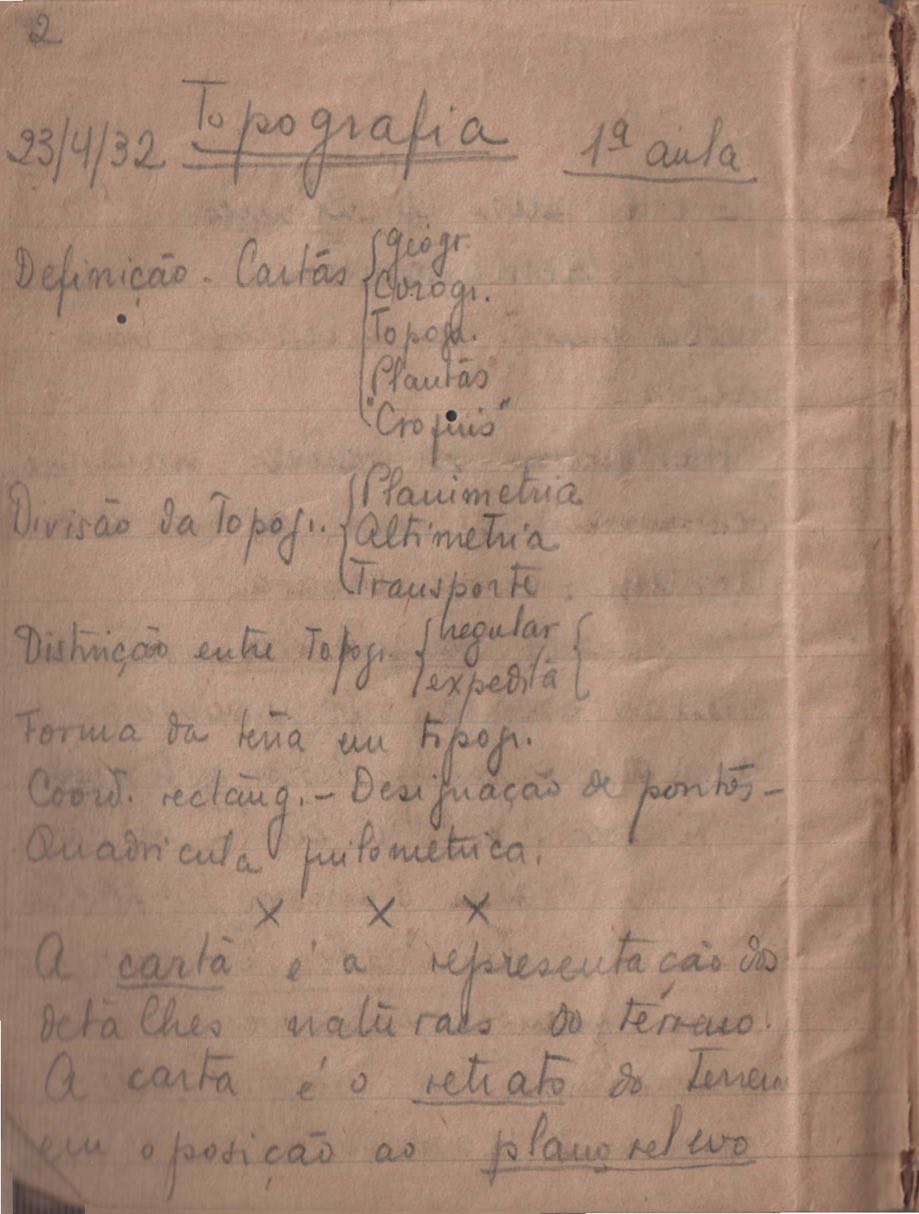 2
23/4/32 Topografia 1ª aula
Definição - Cartas
Geogr.
Corogr.
Topogr.
Plantas
"Croquis"
Divisão da Topogr.
Planimetria
Altimetria
Transporte
Distinção entre Topogr.
regular
expedita
Forma da terra em topogr.
Coord. rectang. - Designação de pontos -
Quadricula quilometrica.
X X X
A carta é a representação dos
detalhes naturaes do terreno.
A carta é o retrato do terreno
em oposição ao plano relevo